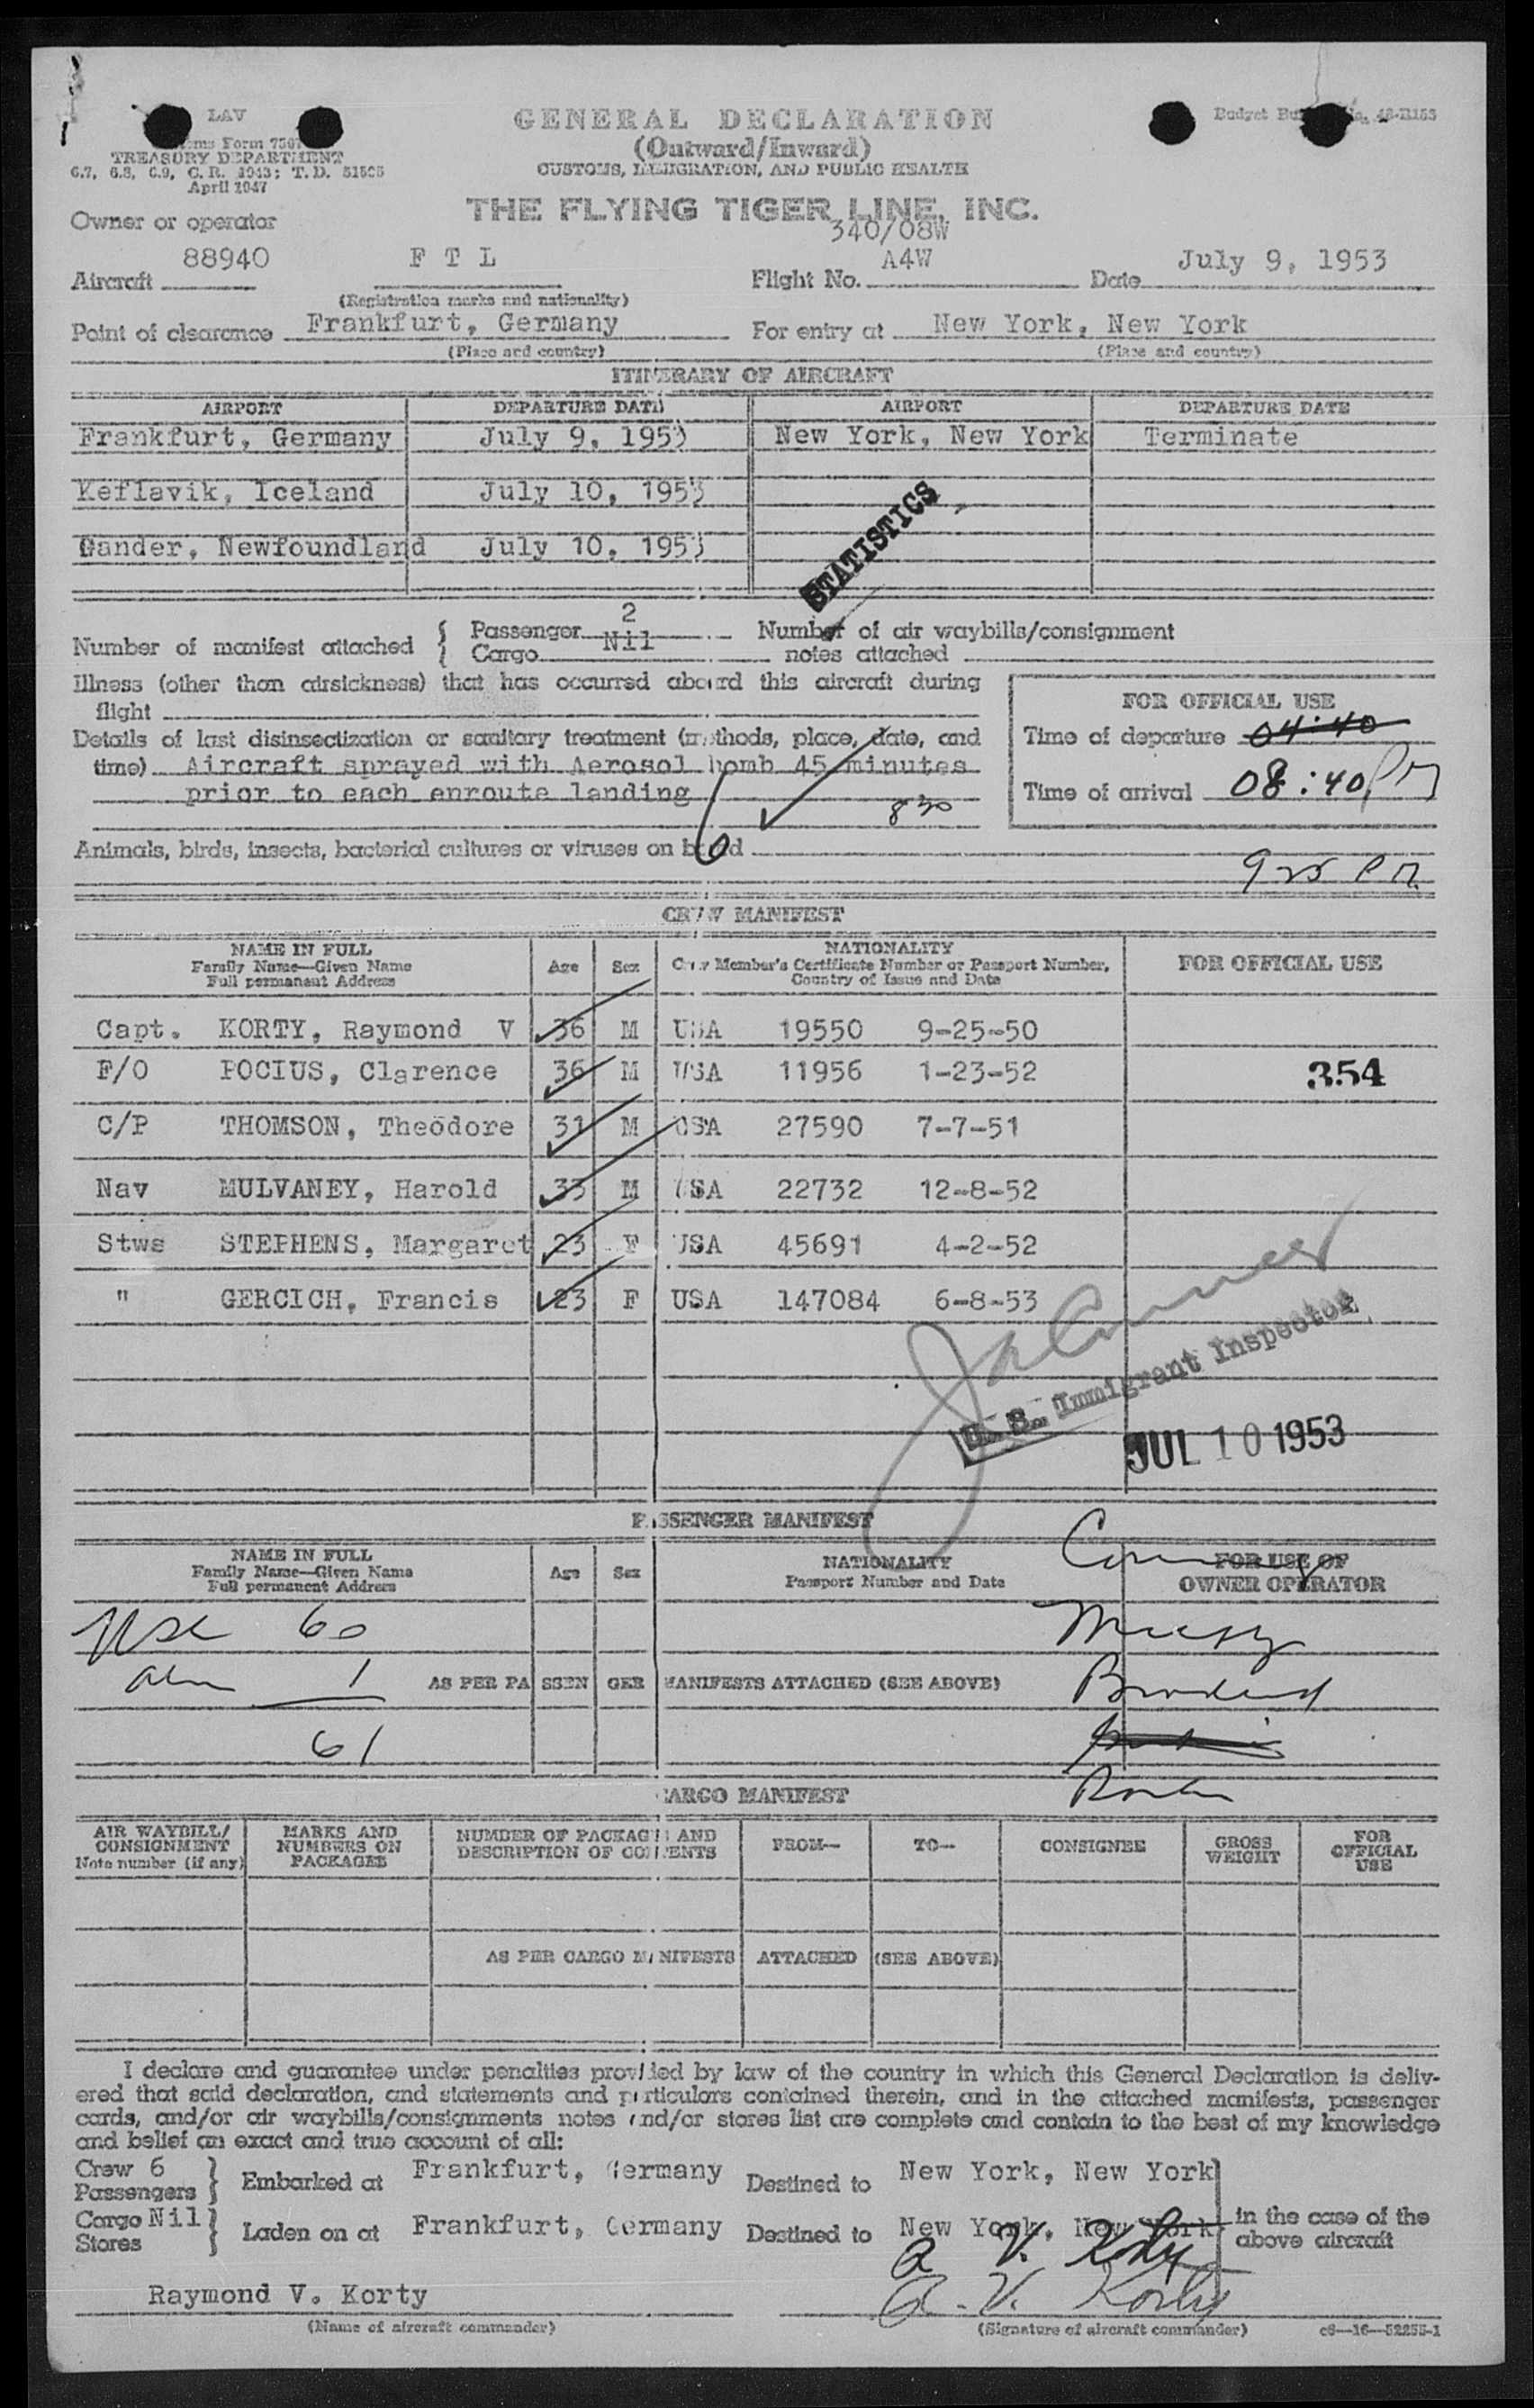 LAV
GENERAL DECLARATION
Customs Form 7507
(Outward/Inward)
TREASURY DEPARTMENT
CUSTOMS, IMMIGRATION, AND PUBLIC HEALTH
6.7, 6.8, 6.9, C.R. 1943; T.D. 51505
April 1947
THE FLYING TIGER LINE, INC.
Owner or operator
340/08W
Aircraft 88940 F T L Flight No. A4W Date July 9, 1953
(Registration marks and nationality)
Point of clearance Frankfurt, Germany For entry at New York, New York
(Place and country) (Place and country)
ITINERARY OF AIRCRAFT
AIRPORT DEPARTURE DATE AIRPORT DEPARTURE DATE
Frankfurt, Germany July 9, 1953 New York, New York Terminate
Keflavik, Iceland July 10, 1953
Gander, Newfoundland July 10, 1953
STATISTICS
Number of manifest attached { Passenger 2 Number of air waybills/consignment
Cargo Nil notes attached
Illness (other than airsickness) that has occurred aboard this aircraft during
flight
FOR OFFICIAL USE
Details of last disinsectization or sanitary treatment (methods, place, date, and
time) Aircraft sprayed with Aerosol bomb 45 minutes
prior to each enroute landing
Time of departure 04:40
Time of arrival 08:40 PM
6
830
Animals, birds, insects, bacterial cultures or viruses on board
925 PM
CREW MANIFEST
NAME IN FULL
Family Name—Given Name
Full permanent Address
Age Sex
NATIONALITY
Crew Member's Certificate Number or Passport Number,
Country of Issue and Date
FOR OFFICIAL USE
Capt. KORTY, Raymond V 36 M USA 19550 9-25-50
F/O POCIUS, Clarence 36 M USA 11956 1-23-52
354
C/P THOMSON, Theodore 31 M USA 27590 7-7-51
Nav MULVANEY, Harold 33 M USA 22732 12-8-52
Stws STEPHENS, Margaret 23 F USA 45691 4-2-52
" GERCICH, Francis 23 F USA 147084 6-8-53
U. S. Immigrant Inspector
JUL 10 1953
PASSENGER MANIFEST
NAME IN FULL
Family Name—Given Name
Full permanent Address
Age Sex
NATIONALITY
Passport Number and Date
FOR USE OF
OWNER OPERATOR
USC 60
1
AS PER PASSENGER MANIFESTS ATTACHED (SEE ABOVE)
61
CARGO MANIFEST
AIR WAYBILL/
CONSIGNMENT
Note number (if any)
MARKS AND
NUMBERS ON
PACKAGES
NUMBER OF PACKAGES AND
DESCRIPTION OF CONTENTS
FROM—
TO—
CONSIGNEE
GROSS
WEIGHT
FOR
OFFICIAL
USE
AS PER CARGO MANIFESTS ATTACHED (SEE ABOVE)
I declare and guarantee under penalties provided by law of the country in which this General Declaration is deliv-
ered that said declaration, and statements and particulars contained therein, and in the attached manifests, passenger
cards, and/or air waybills/consignments notes and/or stores list are complete and contain to the best of my knowledge
and belief an exact and true account of all:
Crew 6
Passengers } Embarked at Frankfurt, Germany Destined to New York, New York
Cargo Nil
Stores } Laden on at Frankfurt, Germany Destined to New York, New York
in the case of the
above aircraft
R. V. Korty
Raymond V. Korty R. V. Korty
(Name of aircraft commander) (Signature of aircraft commander) c6—16—52255-1